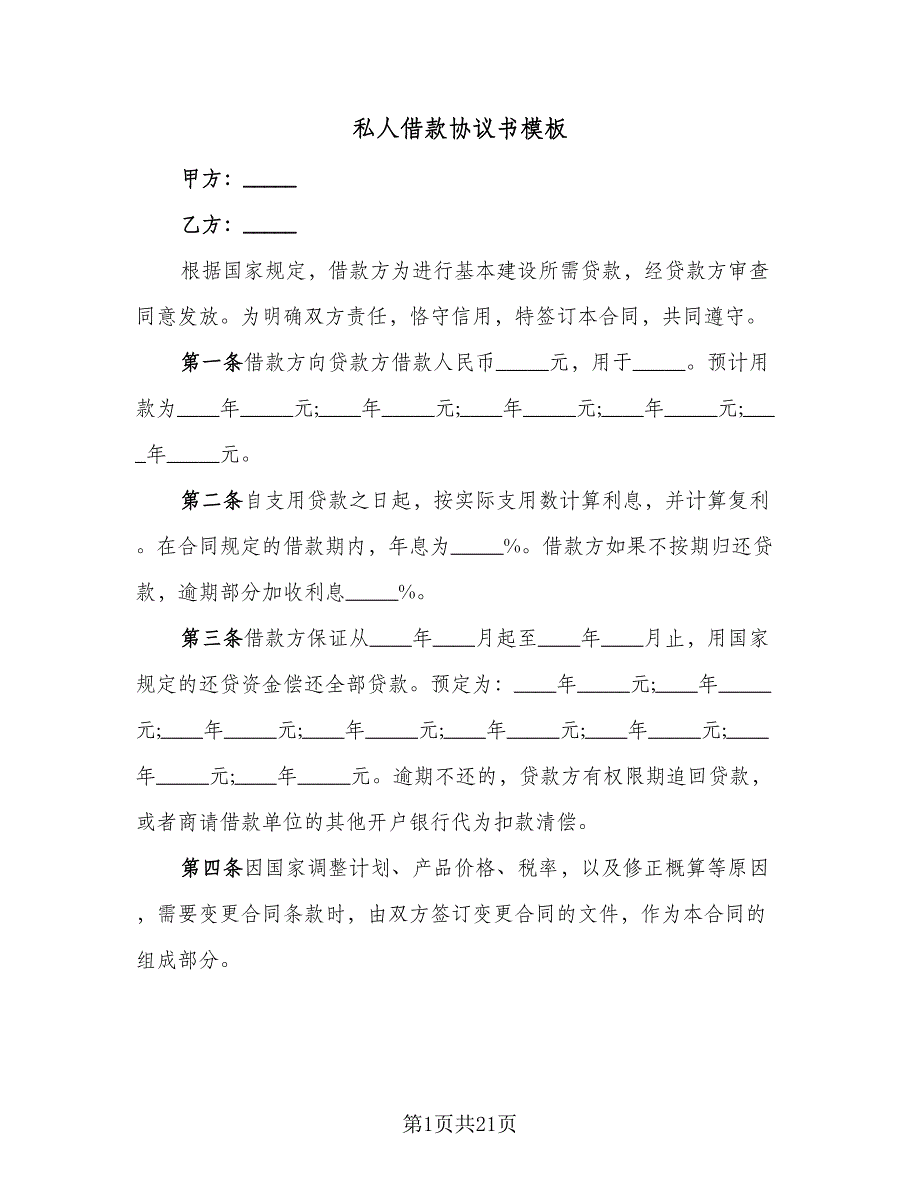 私人借款协议书模板
甲方：_____
乙方：_____
根据国家规定，借款方为进行基本建设所需贷款，经贷款方审查
同意发放。为明确双方责任，恪守信用，特签订本合同，共同遵守。
第一条借款方向贷款方借款人民币_____元，用于_____。预计用
款为____年_____元;____年_____元;____年_____元;____年_____元;___
_年_____元。
第二条自支用贷款之日起，按实际支用数计算利息，并计算复利
。在合同规定的借款期内，年息为_____%。借款方如果不按期归还贷
款，逾期部分加收利息_____%。
第三条借款方保证从____年____月起至____年____月止，用国家
规定的还贷资金偿还全部贷款。预定为：____年_____元;____年_____
元;____年_____元;____年_____元;____年_____元;____年_____元;____
年_____元;____年_____元。逾期不还的，贷款方有权限期追回贷款，
或者商请借款单位的其他开户银行代为扣款清偿。
第四条因国家调整计划、产品价格、税率，以及修正概算等原因
，需要变更合同条款时，由双方签订变更合同的文件，作为本合同的
组成部分。
第1页共21页